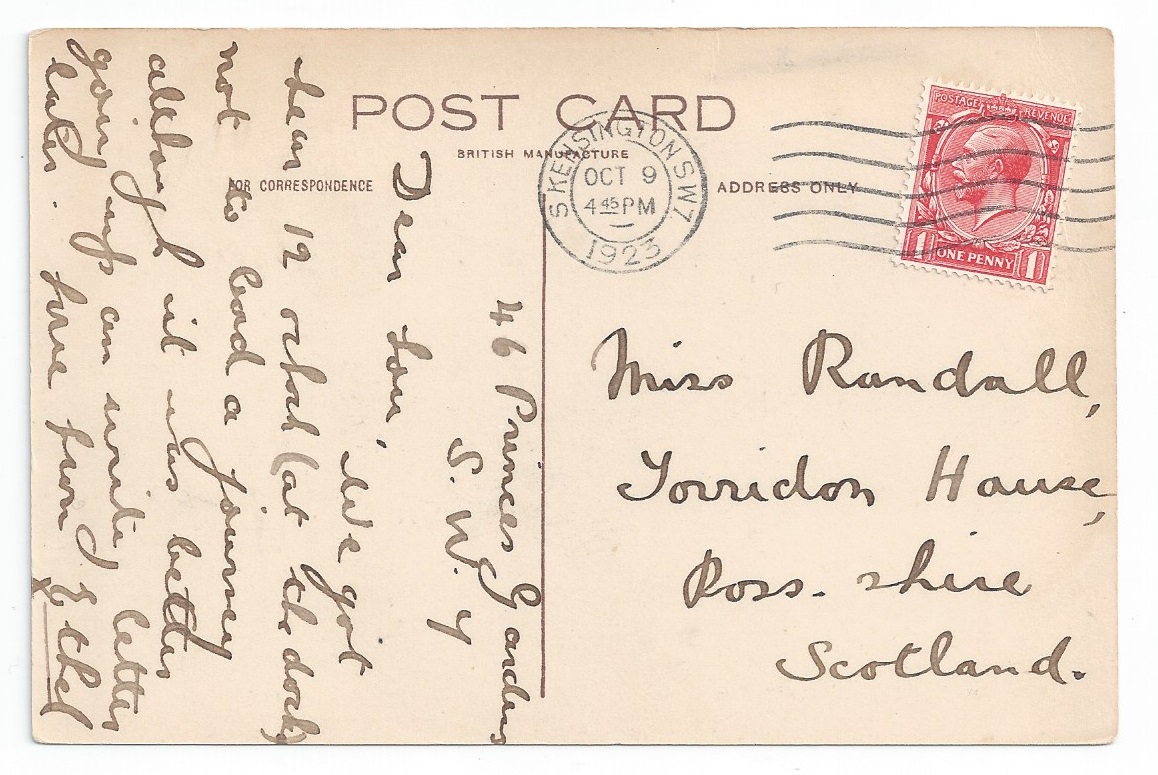 POST CARD
BRITISH MANUFACTURE
FOR CORRESPONDENCE
ADDRESS ONLY
S. KENSINGTON S.W.7
OCT 9
4 45 PM
1923
POSTAGE REVENUE
1 ONE PENNY 1
46 Princes Gardens
S. W. 7
Dear Lou,
We got
here 12 o'clock (at the dock)
not so bad a journey
although it was better
going up am writing letter
later. Love from Ethel
x
Miss Randall,
Torridon House,
Ross-shire
Scotland.